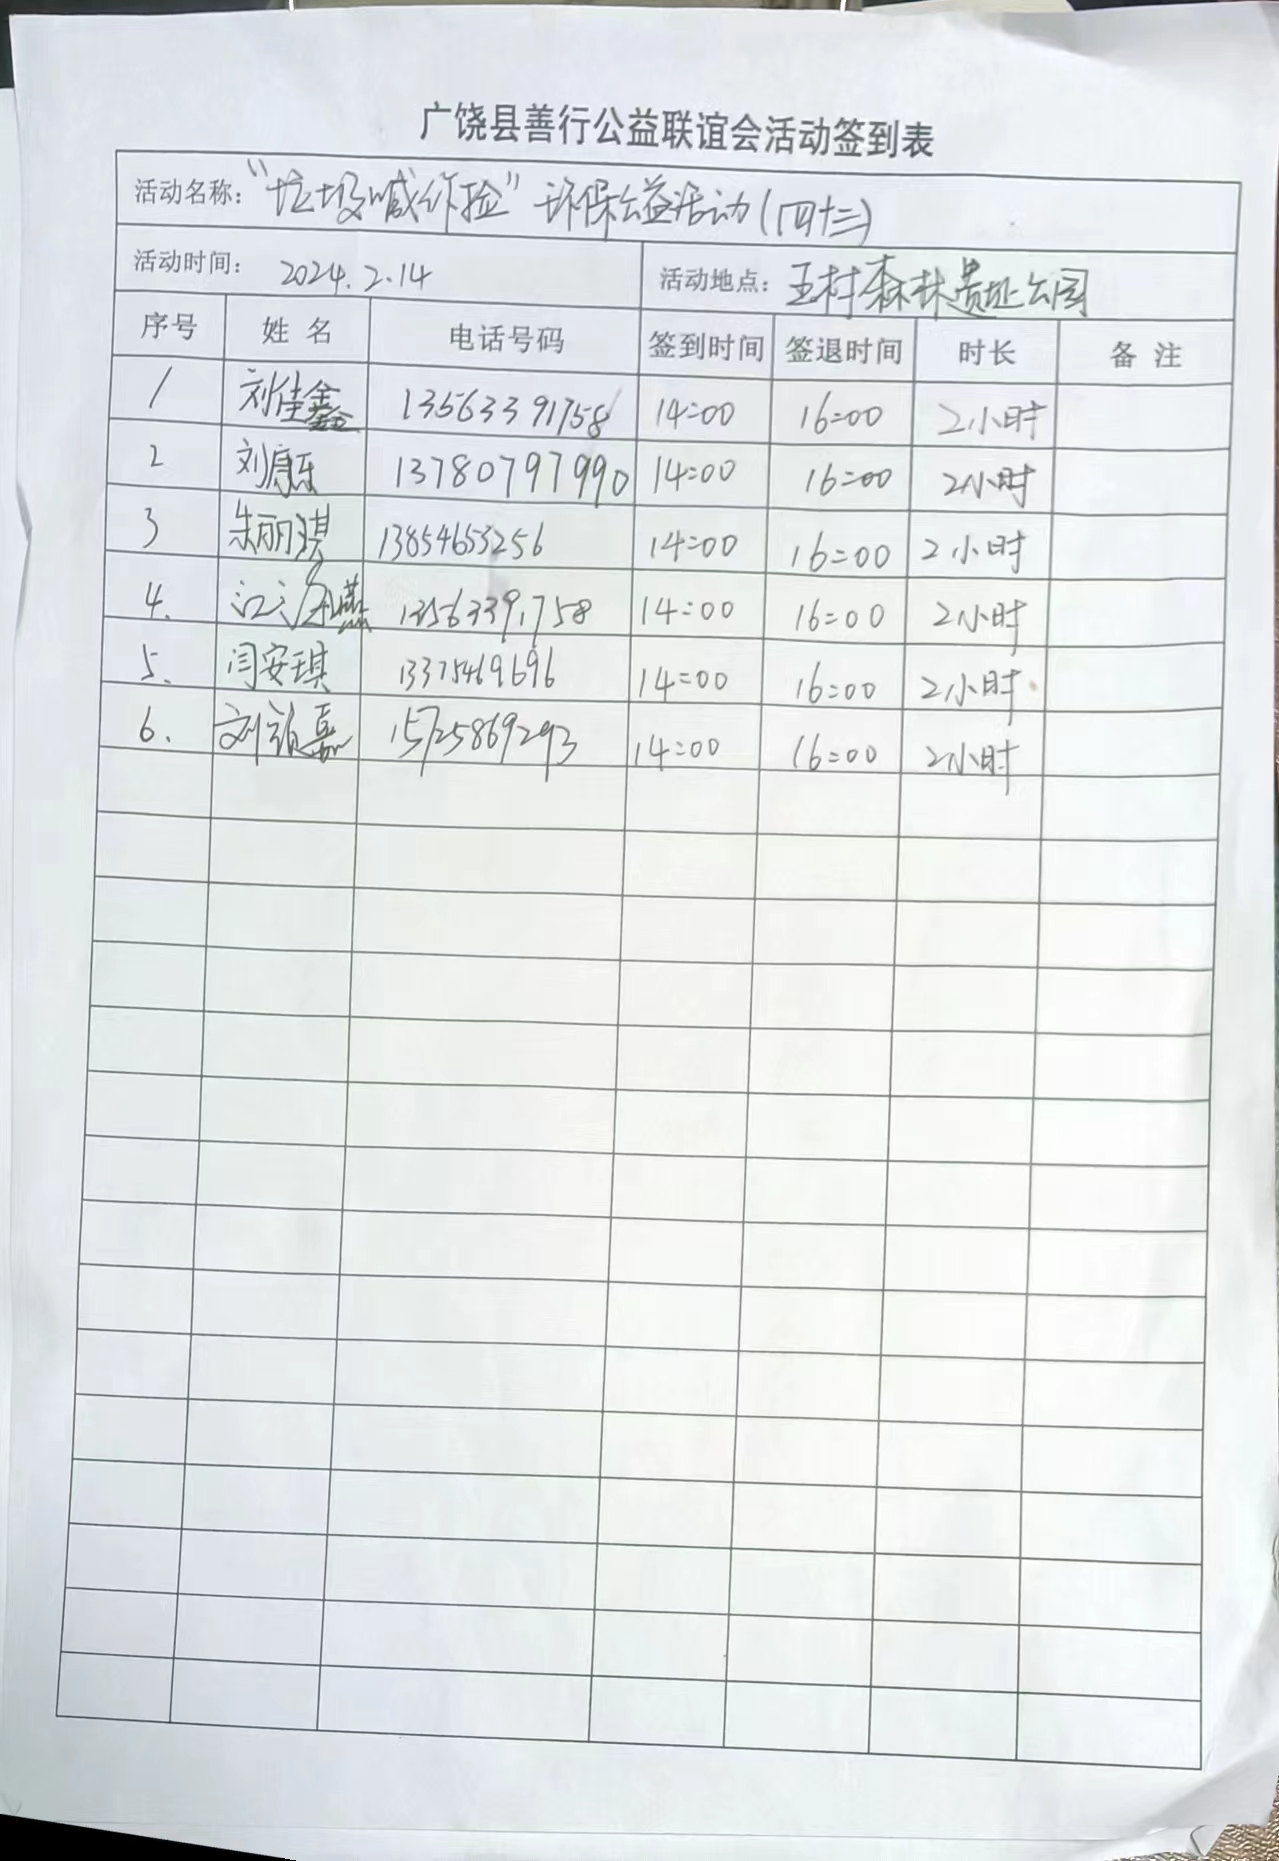 广饶县善行公益联谊会活动签到表
活动名称："垃圾喊你捡"环保公益活动(四十二)
活动时间： 2024.2.14 活动地点：王村森林遗址公园
序号 姓名 电话号码 签到时间 签退时间 时长 备注
1 刘佳鑫 13563391758 14:00 16:00 2小时
2 刘康乐 13780797990 14:00 16:00 2小时
3 朱丽琪 13854653256 14:00 16:00 2小时
4. 13563391758 14:00 16:00 2小时
5. 闫安琪 13375469696 14:00 16:00 2小时
6. 刘 嘉 15725869293 14:00 16:00 2小时